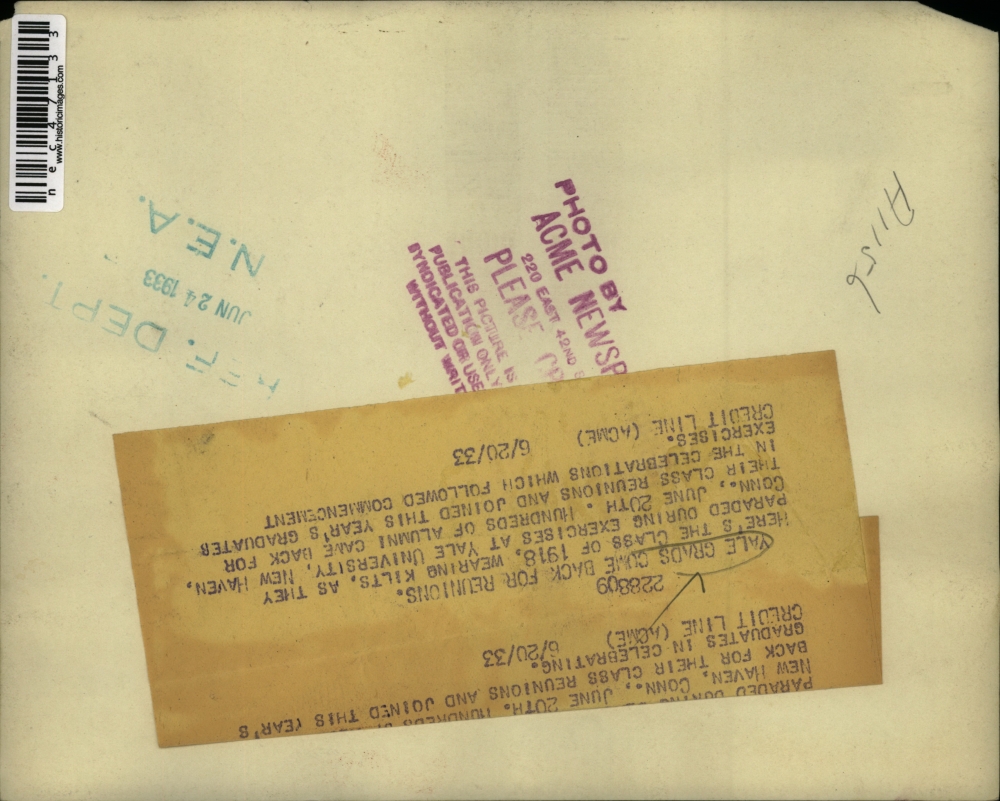 nec47133
www.historicimages.com
N.E.A.
JUN 24 1933
REF. DEPT.
PHOTO BY
ACME NEWSP
220 EAST 42ND
PLEASE CR
THIS PICTURE IS
PUBLICATION ONLY
SYNDICATED OR USE
WITHOUT WRIT
A1156
228809
YALE GRADS COME BACK FOR REUNIONS.
HERE'S THE CLASS OF 1918, WEARING KILTS, AS THEY
PARADED DURING EXERCISES AT YALE UNIVERSITY, NEW HAVEN,
CONN., JUNE 20TH. HUNDREDS OF ALUMNI CAME BACK FOR
THEIR CLASS REUNIONS AND JOINED THIS YEAR'S GRADUATES
IN THE CELEBRATIONS WHICH FOLLOWED COMMENCEMENT
EXERCISES.
CREDIT LINE (ACME) 6/20/33
PARADED DURING
NEW HAVEN, CONN., JUNE 20TH. HUNDREDS
BACK FOR THEIR CLASS REUNIONS AND JOINED THIS YEAR'S
GRADUATES IN CELEBRATING.
CREDIT LINE (ACME) 6/20/33